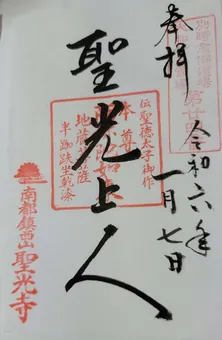 奉拝
令和六年
一月七日
聖光上人
伝聖徳太子御作
本尊
地蔵菩薩
半跏趺坐乾漆
南都鎮西山
聖光寺